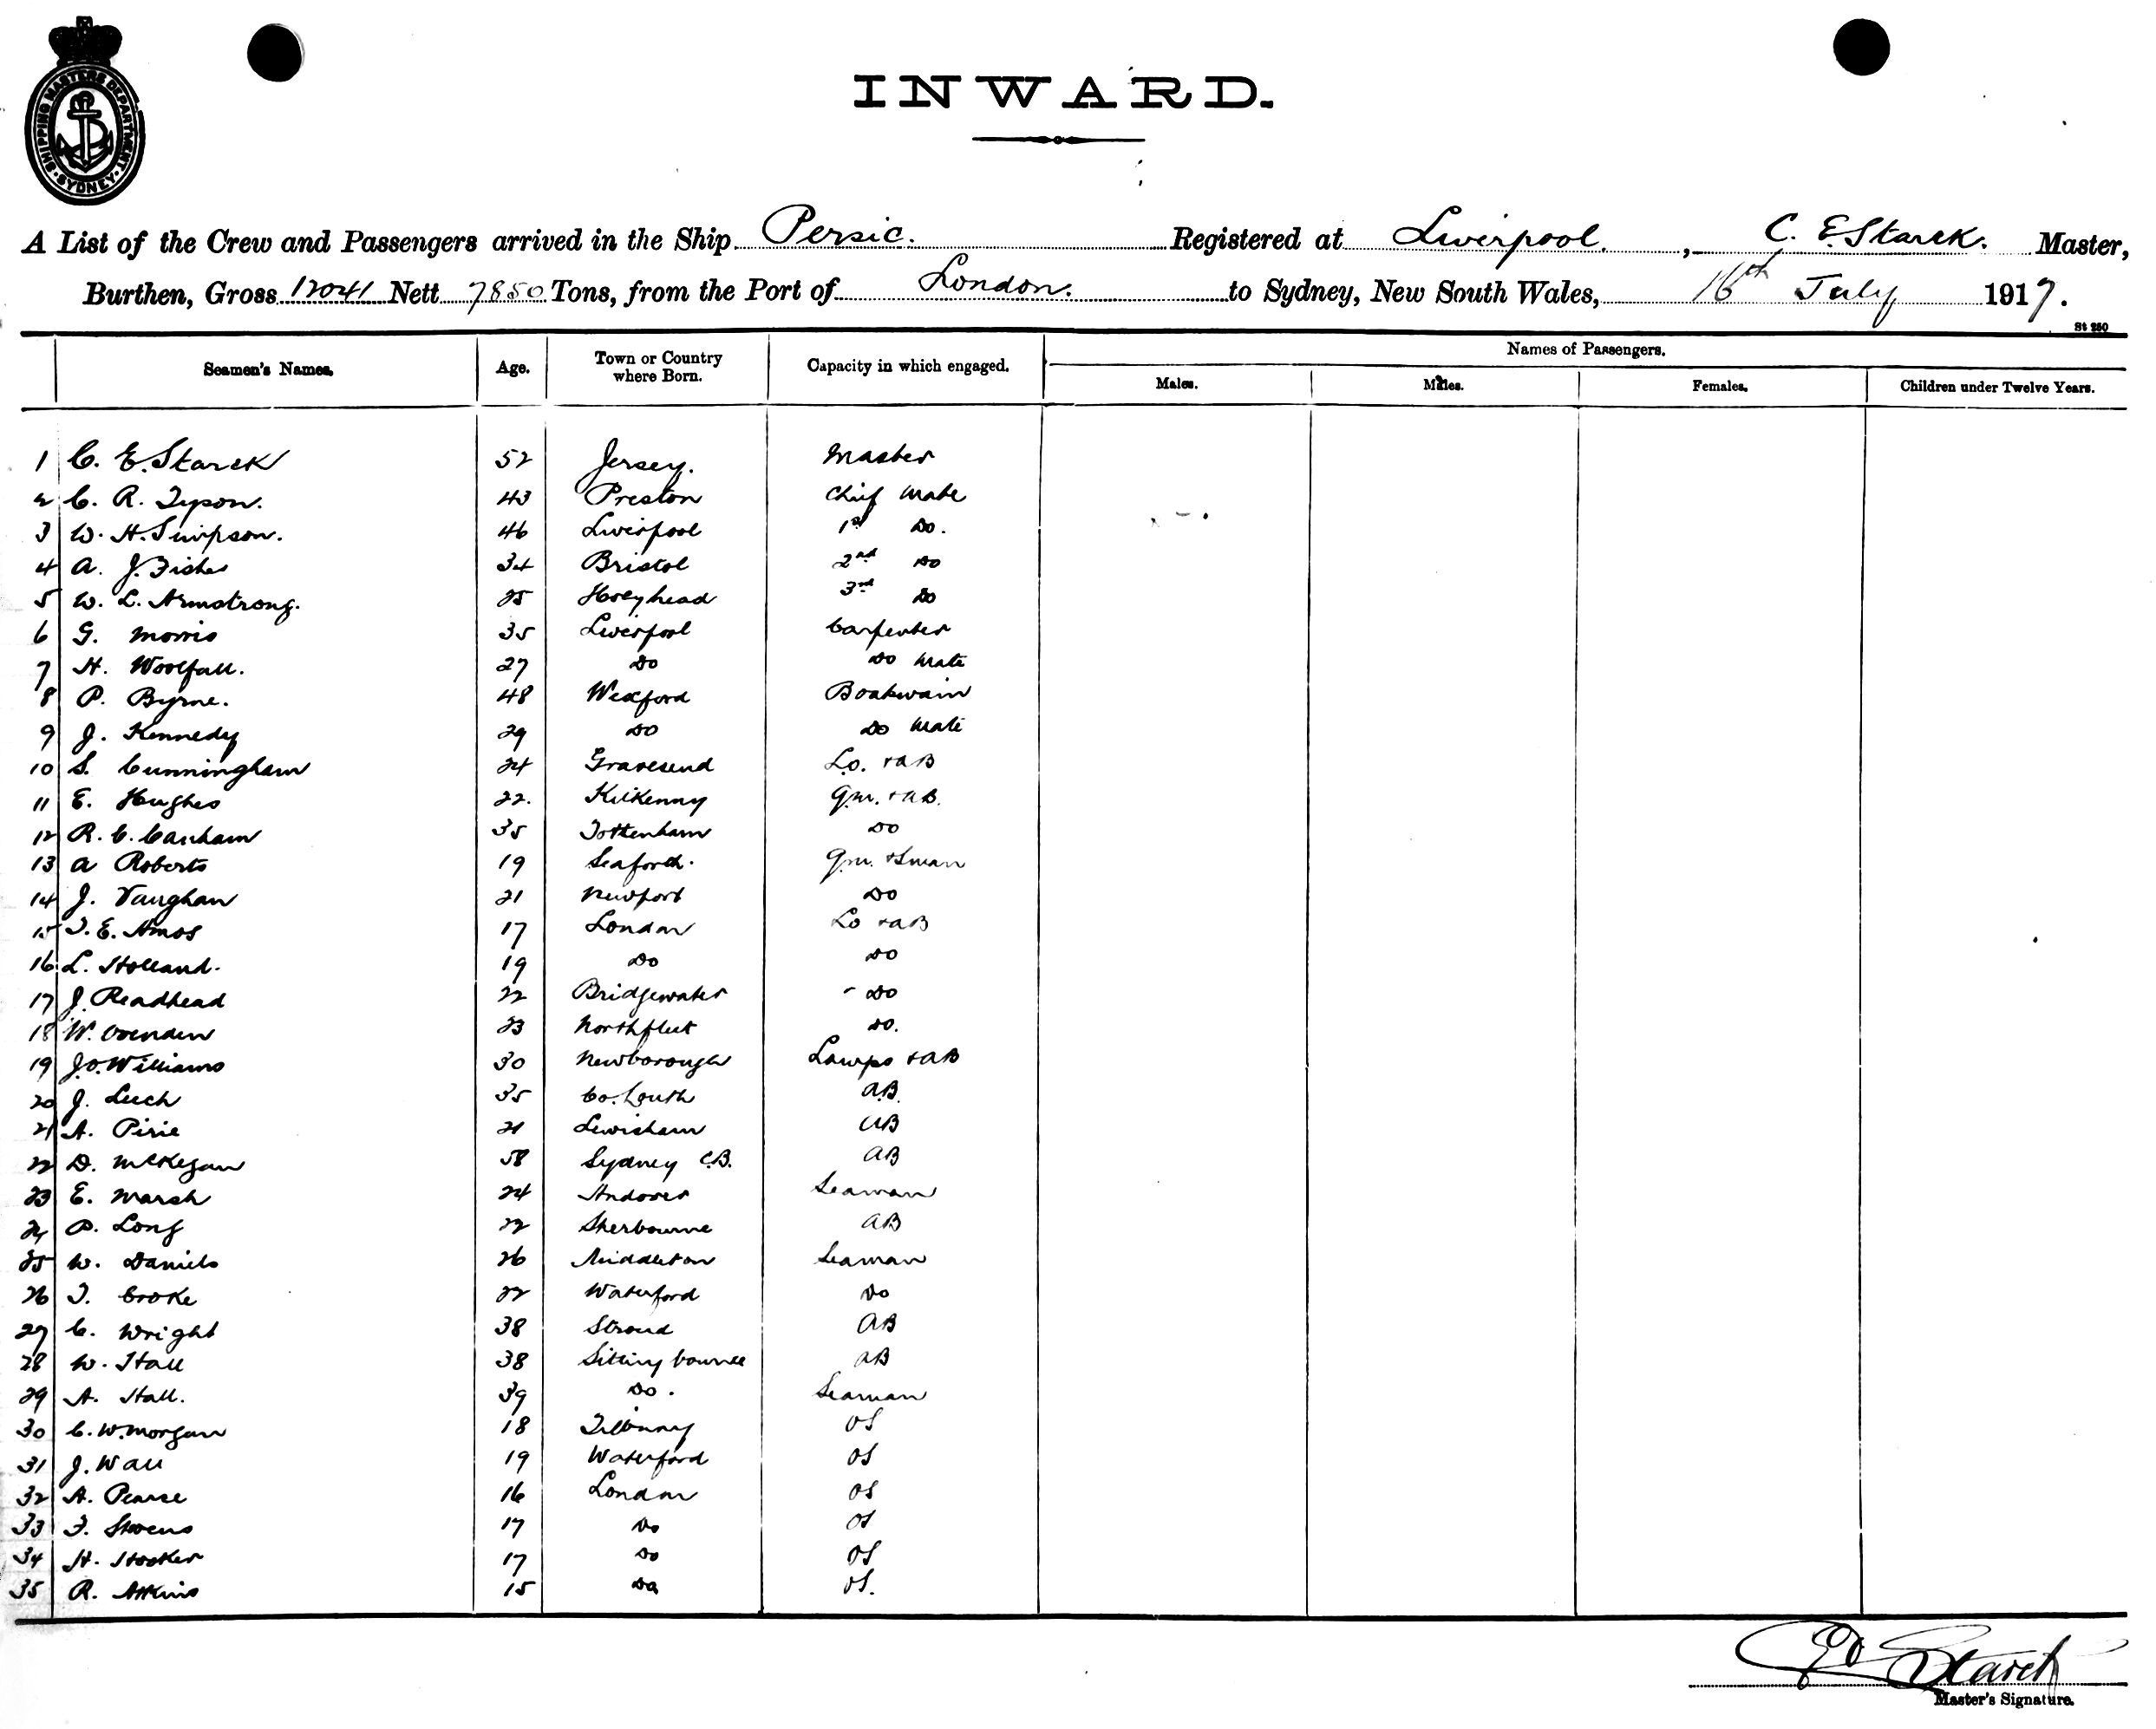 SHIPPING MASTERS DEPARTMENT SYDNEY
INWARD.
A List of the Crew and Passengers arrived in the Ship Persic. Registered at Liverpool, C. E. Starck. Master,
Burthen, Gross 12041 Nett 7850 Tons, from the Port of London. to Sydney, New South Wales, 16th July 1917.
St 250
Names of Passengers.
Seamen's Names. Age. Town or Country where Born. Capacity in which engaged. Males. Males. Females. Children under Twelve Years.
1 C. E. Starck 52 Jersey. Master
2 C. R. Tyson. 43 Preston Chief Mate
3 W. H. Simpson. 46 Liverpool 1st Do.
4 A. J. Fisher 34 Bristol 2nd Do
5 W. L. Armstrong. 25 Holyhead 3rd Do
6 G. Morris 35 Liverpool Carpenter
7 H. Woolfall. 27 Do Do Mate
8 P. Byrne. 48 Wexford Boatswain
9 J. Kennedy 29 Do Do Mate
10 S. Cunningham 24 Gravesend Lo. + AB
11 E. Hughes 22. Kilkenny Qm. + AB.
12 R. C. Canham 35 Tottenham Do
13 A Roberts 19 Seaforth. Qm. + Sman
14 J. Vaughan 21 Newport Do
15 T. E. Amos 17 London Lo + AB
16 L. Holland. 19 Do Do
17 J. Readhead 22 Bridgewater Do
18 W. 23 Northfleet Do.
19 J. O. Williams 30 Newborough Lamps + AB
20 J. Luch 35 Co. Louth AB.
21 A. Pirie 21 Lewisham AB
22 D. McKegan 58 Sydney C.B. AB
23 E. Marsh 24 Andover Seaman
24 P. Long 22 Sherbourne AB
25 W. Daniels 26 Middleton Seaman
26 T. Croke 22 Waterford Do
27 C. Wright 38 Stroud AB
28 W. Hall 38 Sittingbourne AB
29 A. Hall. 39 Do. Seaman
30 C. W. Morgan 18 Tilbury OS
31 J. Wall 19 Waterford OS
32 A. Pearse 16 London OS
33 F. Stevens 17 Do OS
34 H. Hooker 17 Do OS
35 R. Atkins 15 Do OS.
Starck
Master's Signature.